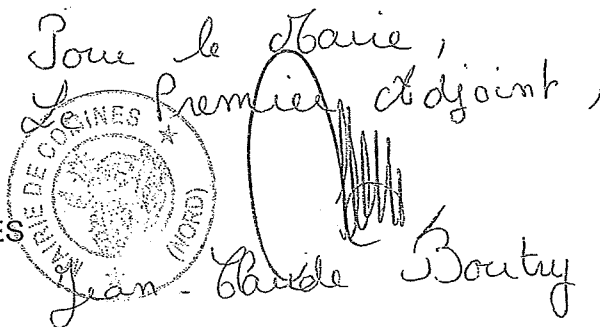 Pour le Maire,
Le Premier Adjoint,
MAIRIE DE COBRINES
(NORD)
ES
Jean-Claude Boutry